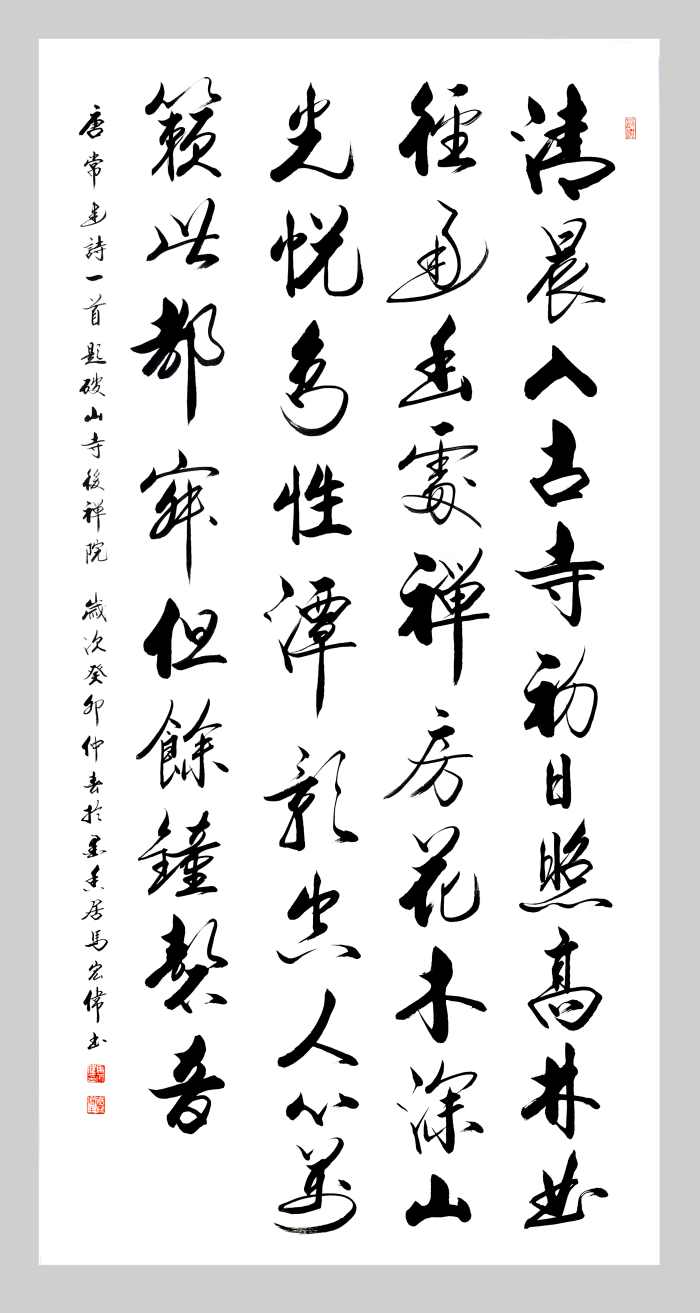 清晨入古寺初日照高林曲
徑通幽處禅房花木深山
光悅鳥性潭影空人心萬
籟此都寂但餘鐘磬音
唐常建詩一首題破山寺後禅院 歲次癸卯仲春於墨香居馬宏偉書